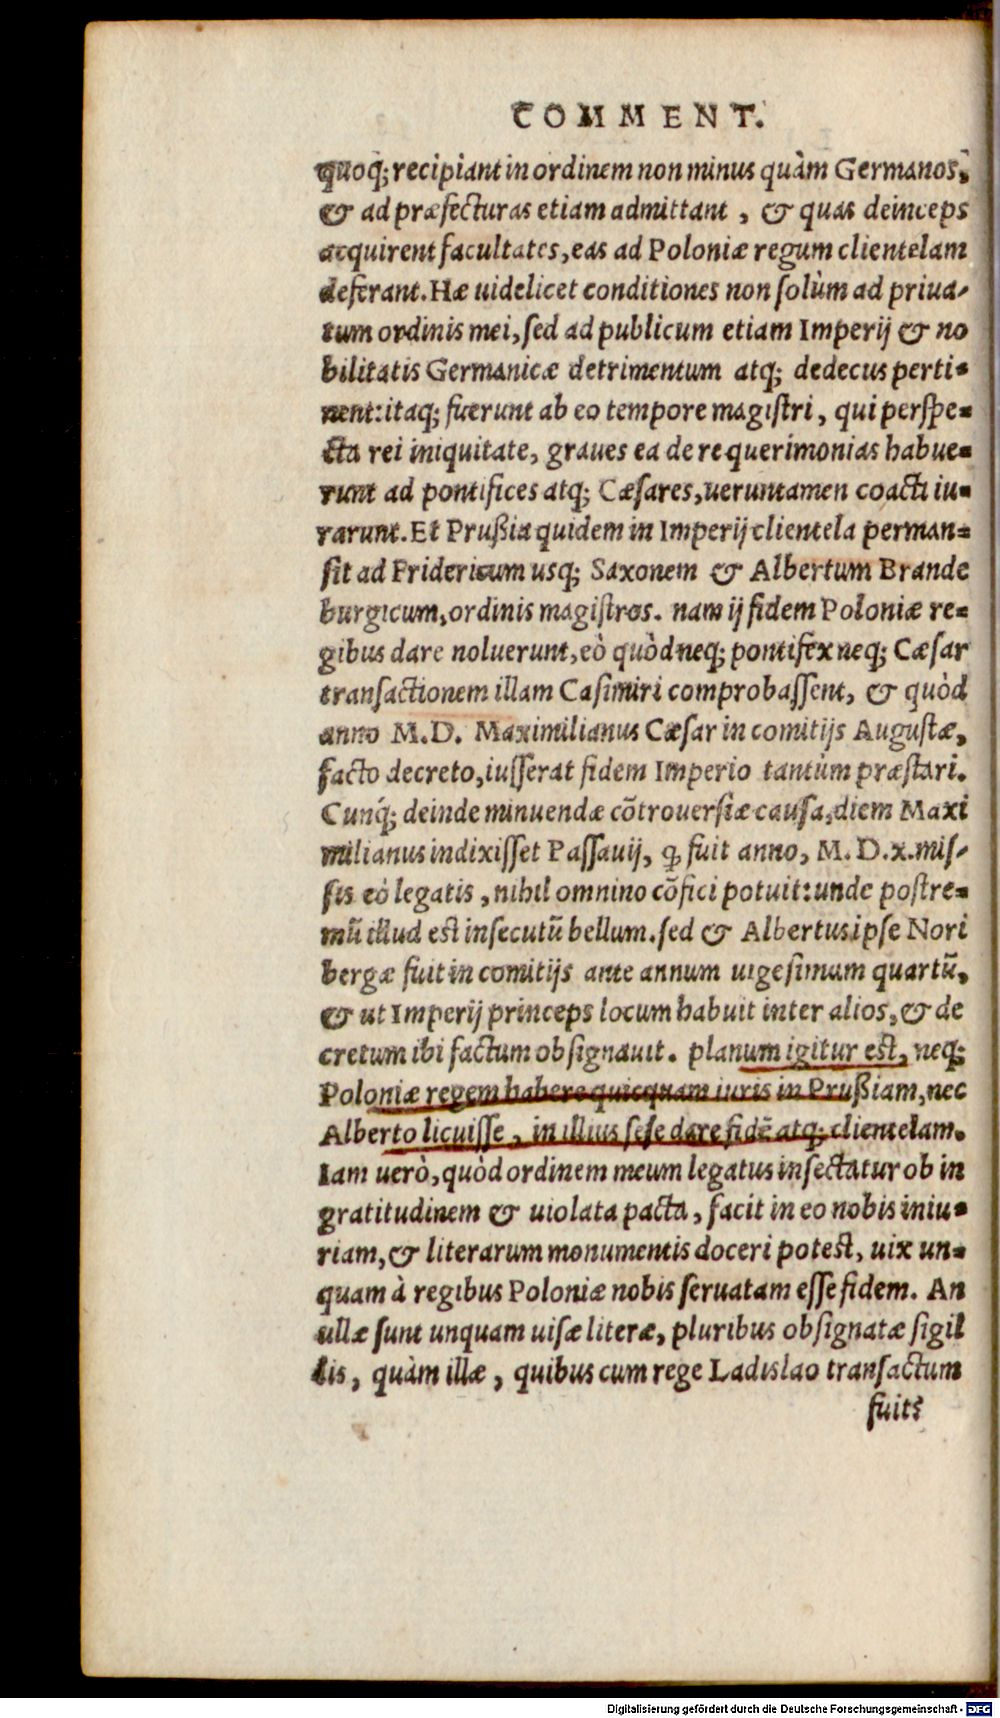 COMMENT.
quoq; recipiant in ordinem non minus quàm Germanos,
& ad præfecturas etiam admittant, & quas deinceps
acquirent facultates, eas ad Poloniæ regum clientelam
deferant. Hæ uidelicet conditiones non ſolùm ad priua-
tum ordinis mei, ſed ad publicum etiam Imperij & no
bilitatis Germanicæ detrimentum atq; dedecus perti-
nent: itaq; fuerunt ab eo tempore magiſtri, qui perſpe-
cta rei iniquitate, graues ea de re querimonias habue-
runt ad pontifices atq; Cæſares, ueruntamen coacti iu-
rarunt. Et Prußia quidem in Imperij clientela perman-
ſit ad Fridericum uſq; Saxonem & Albertum Brande
burgicum, ordinis magiſtros. nam ij fidem Poloniæ re-
gibus dare noluerunt, eò quòd neq; pontifex neq; Cæſar
transactionem illam Caſimiri comprobaſſent, & quòd
anno M.D. Maximilianus Cæſar in comitijs Auguſtæ,
facto decreto, iuſſerat fidem Imperio tantùm præſtari.
Cunq́; deinde minuendæ cõtrouerſiæ cauſa, diem Maxi
milianus indixiſſet Paſſauij, ꝙ fuit anno, M.D.x. miſ-
ſis eò legatis, nihil omnino cõfici potuit: unde poſtre-
mũ illud eſt inſecutũ bellum. ſed & Albertus ipſe Nori
bergæ fuit in comitijs ante annum uigeſimum quartũ,
& ut Imperij princeps locum habuit inter alios, & de
cretum ibi factum obſignauit. planum igitur eſt, neq;
Poloniæ regem habere quicquam iuris in Prußiam, nec
Alberto licuiſſe, in illius ſeſe dare fidẽ atq; clientelam.
Iam uerò, quòd ordinem meum legatus inſectatur ob in
gratitudinem & uiolata pacta, facit in eo nobis iniu-
riam, & literarum monumentis doceri poteſt, uix un-
quam à regibus Poloniæ nobis ſeruatam eſſe fidem. An
ullæ ſunt unquam uiſæ literæ, pluribus obſignatæ ſigil
lis, quàm illæ, quibus cum rege Ladislao tranſactum
fuit?
Digitalisierung gefördert durch die Deutsche Forschungsgemeinschaft - DFG